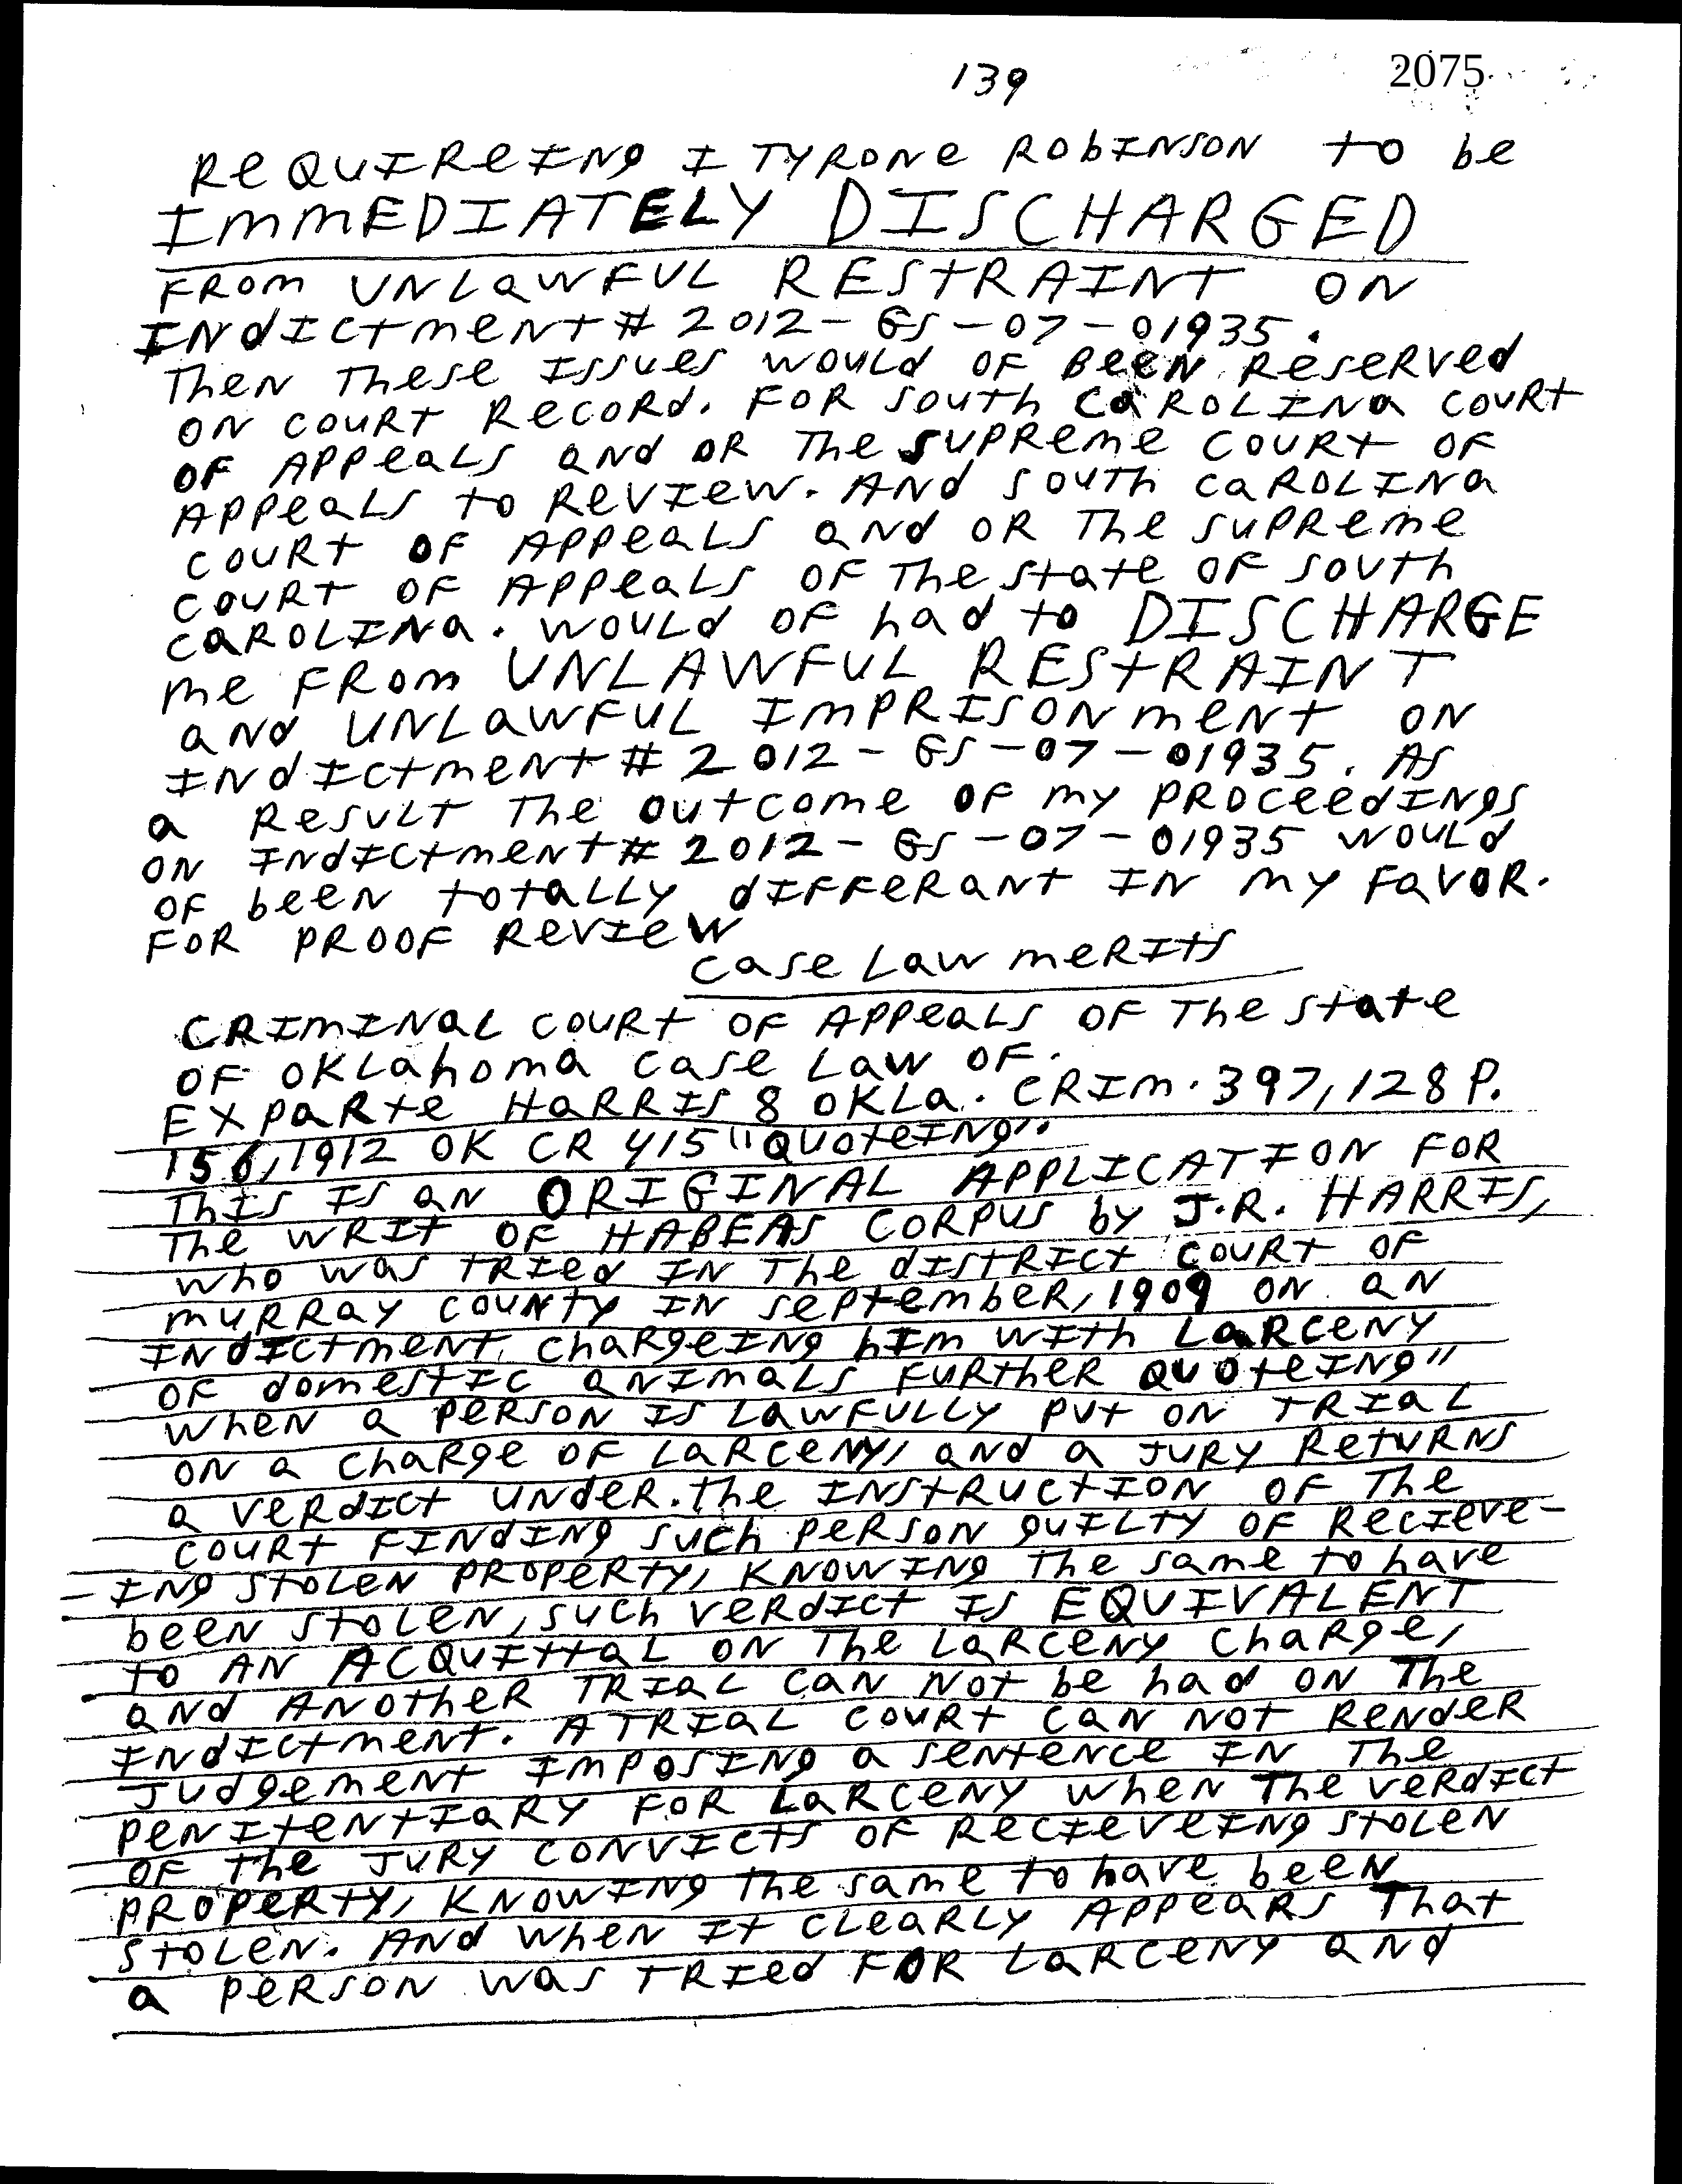 139
2075
REQUIREING I TYRONE ROBINSON to be
IMMEDIATELY DISCHARGED
FROM UNLAWFUL RESTRAINT ON
INDICTMENT # 2012-GS-07-01935.
Then These ISSUES WOULD OF BEEN RESERVED
ON COURT RECORD. FOR SOUTH CAROLINA COURT
OF APPEALS AND OR The SUPREME COURT OF
APPEALS to REVIEW. AND SOUTH CAROLINA
COURT OF APPEALS AND OR The SUPREME
COURT OF APPEALS OF The State OF SOUTH
CAROLINA. WOULD OF had to DISCHARGE
me FROM UNLAWFUL RESTRAINT
AND UNLAWFUL IMPRISONMENT ON
INDICTMENT # 2012-GS-07-01935. AS
a RESULT The OUTCOME OF MY PROCEEDINGS
ON INDICTMENT # 2012-GS-07-01935 WOULD
OF been TOTALLY DIFFERANT IN MY FAVOR.
FOR PROOF REVIEW
Case Law MERITS
CRIMINAL COURT OF APPEALS OF The State
OF OKLahoma Case Law OF.
EXPARTE HARRIS 8 OKLA. CRIM. 397, 128 P.
156, 1912 OK CR 415 "QUOTEING".
This IS AN ORIGINAL APPLICATION FOR
The WRIT OF HABEAS CORPUS by J.R. HARRIS,
who was TRIED IN The DISTRICT COURT OF
MURRAY COUNTY IN September, 1909 ON AN
INDICTMENT, CHARGEING HIM WITH LARCENY
OF domestic animals FURTHER QUOTEING"
When a PERSON IS LAWFULLY PUT ON TRIAL
ON a Charge OF LARCENY, AND a JURY RETURNS
a VERDICT UNDER. the INSTRUCTION OF The
COURT FINDING SUCH PERSON GUILTY OF RECIEVE-
- ING STOLEN PROPERTY, KNOWING The same to have
been STOLEN, SUCH VERDICT IS EQUIVALENT
TO AN ACQUITTAL ON The LARCENY Charge,
AND ANOTHER TRIAL CAN NOT be had ON The
INDICTMENT. A TRIAL COURT CAN NOT RENDER
JUDGEMENT IMPOSING a SENTENCE IN The
PENITENTIARY FOR LARCENY WHEN The VERDICT
OF The JURY CONVICTS OF RECIEVEING STOLEN
PROPERTY, KNOWING The same to have been
STOLEN. AND WHEN It CLEARLY APPEARS That
a PERSON was TRIED FOR LARCENY AND